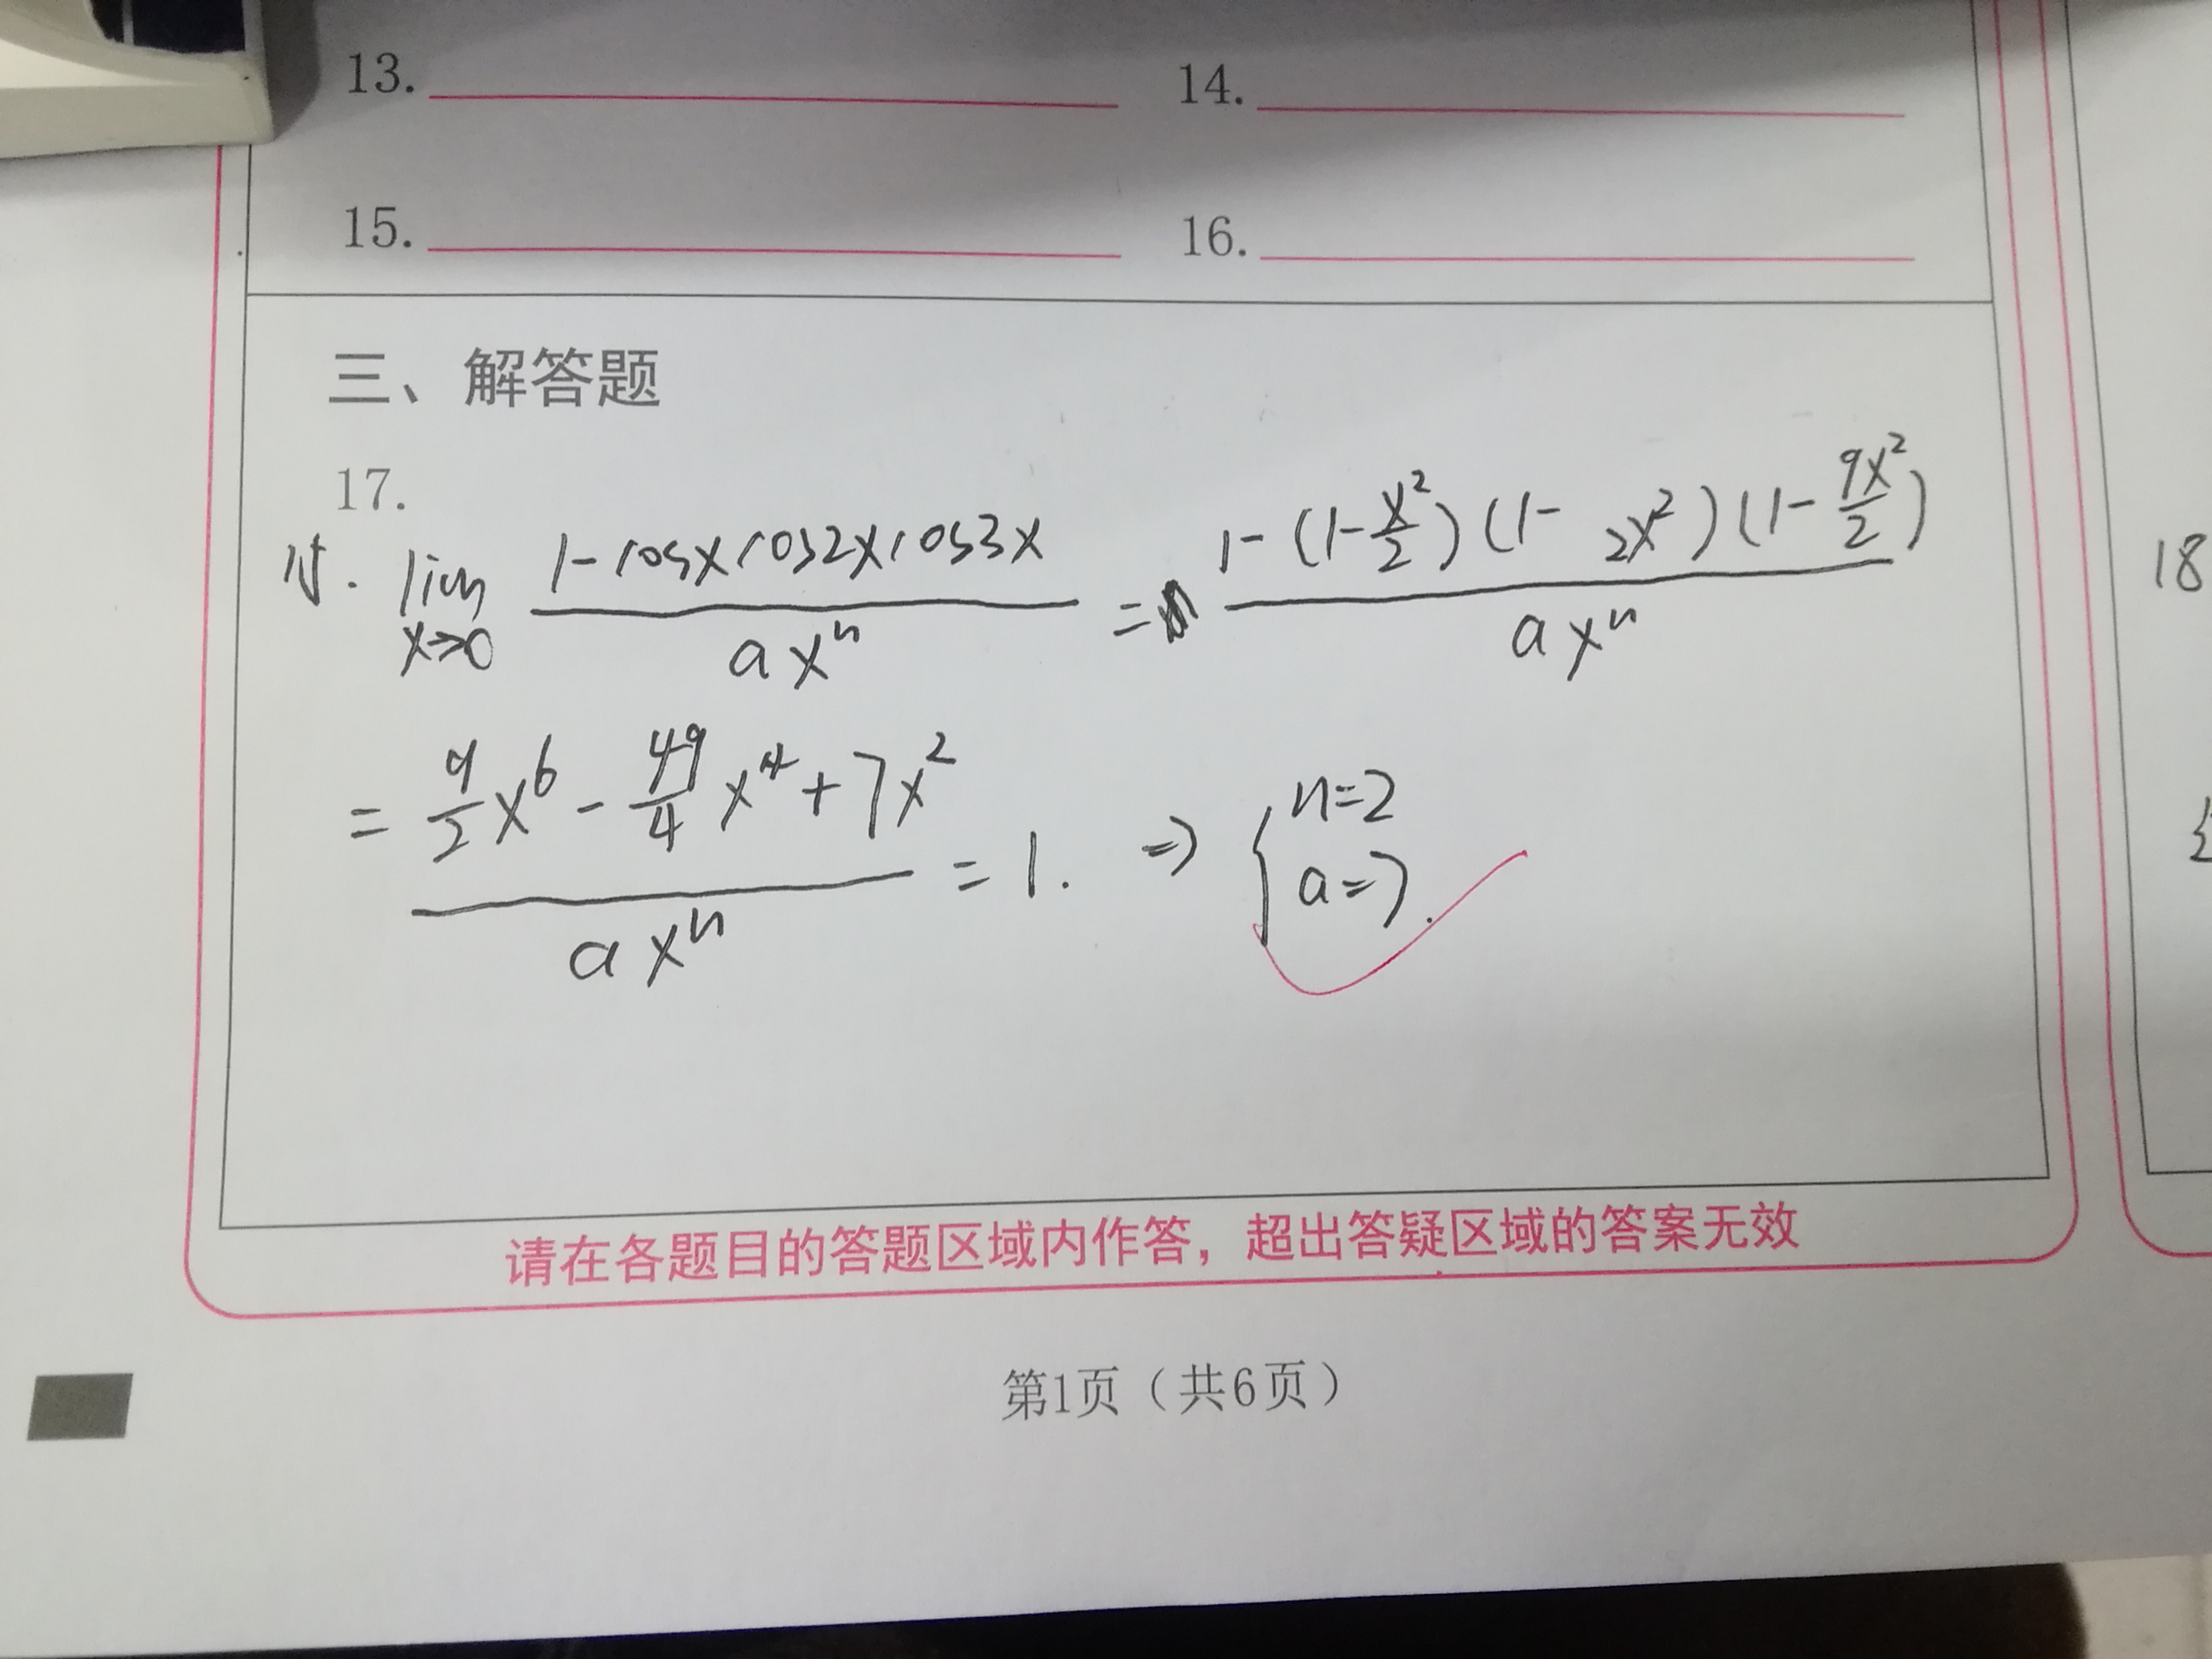 13. 14.
15. 16.
三、解答题
17.
lim x→0 (1-cosxcos2xcos3x)/(ax^n) = (1-(1-x²/2)(1-2x²)(1-9x²/2))/(ax^n)
18
= (9/2 x⁶ - 49/4 x⁴ + 7x²)/(ax^n) = 1. ⇒ { n=2 a=7.
请在各题目的答题区域内作答，超出答疑区域的答案无效
第1页（共6页）